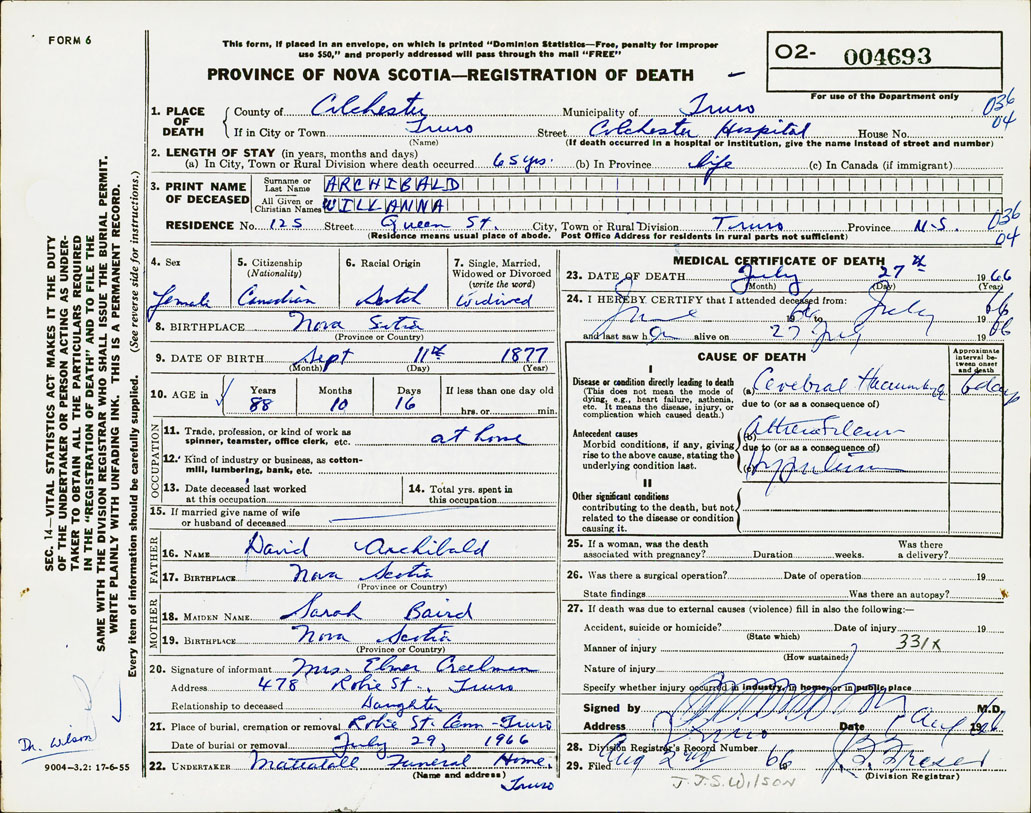 FORM 6
This form, if placed in an envelope, on which is printed "Dominion Statistics—Free, penalty for improper
use $50," and properly addressed will pass through the mail "FREE"
O2- 004693
For use of the Department only
PROVINCE OF NOVA SCOTIA—REGISTRATION OF DEATH
1. PLACE OF DEATH
County of Colchester Municipality of Truro 036
If in City or Town Truro Street Colchester Hospital House No. 04
(Name) (If death occurred in a hospital or institution, give the name instead of street and number)
2. LENGTH OF STAY (in years, months and days)
(a) In City, Town or Rural Division where death occurred 65 yrs. (b) In Province life (c) In Canada (if immigrant)
3. PRINT NAME OF DECEASED
Surname or Last Name ARCHIBALD
All Given or Christian Names WILLANNA
RESIDENCE No. 125 Street Queen St. City, Town or Rural Division Truro Province N.S. 036
(Residence means usual place of abode. Post Office Address for residents in rural parts not sufficient) 04
4. Sex Female
5. Citizenship (Nationality) Canadian
6. Racial Origin Scotch
7. Single, Married, Widowed or Divorced (write the word) Widowed
8. BIRTHPLACE Nova Scotia
(Province or Country)
9. DATE OF BIRTH Sept 11th 1877
(Month) (Day) (Year)
10. AGE in Years 88 Months 10 Days 16 If less than one day old
hrs. or min.
OCCUPATION
11. Trade, profession, or kind of work as
spinner, teamster, office clerk, etc. at home
12. Kind of industry or business, as cotton-
mill, lumbering, bank, etc.
13. Date deceased last worked
at this occupation
14. Total yrs. spent in
this occupation
15. If married give name of wife
or husband of deceased
FATHER
16. NAME David Archibald
17. BIRTHPLACE Nova Scotia
(Province or Country)
MOTHER
18. MAIDEN NAME Sarah Baird
19. BIRTHPLACE Nova Scotia
(Province or Country)
20. Signature of informant Mrs. Elmer Creelman
Address 478 Robie St., Truro
Relationship to deceased Daughter
21. Place of burial, cremation or removal Robie St. Cem - Truro
Date of burial or removal July 29, 1966
22. UNDERTAKER Mattatall Funeral Home,
(Name and address) Truro
MEDICAL CERTIFICATE OF DEATH
23. DATE OF DEATH July 27th 1966
(Month) (Day) (Year)
24. I HEREBY CERTIFY that I attended deceased from:
June 1966 to July 1966
and last saw her alive on 27 July 1966
CAUSE OF DEATH
Approximate interval between onset and death
I
Disease or condition directly leading to death
(This does not mean the mode of
dying, e.g., heart failure, asthenia,
etc. It means the disease, injury, or
complication which caused death.)
(a) Cerebral Haemorrhage 6 days
due to (or as a consequence of)
Antecedent causes
Morbid conditions, if any, giving
rise to the above cause, stating the
underlying condition last.
(b)
due to (or as a consequence of)
(c)
II
Other significant conditions
contributing to the death, but not
related to the disease or condition
causing it.
25. If a woman, was the death Was there
associated with pregnancy? Duration weeks. a delivery?
26. Was there a surgical operation? Date of operation 19
State findings Was there an autopsy?
27. If death was due to external causes (violence) fill in also the following:—
Accident, suicide or homicide? Date of injury 19
(State which)
Manner of injury 331x
(How sustained)
Nature of injury
Specify whether injury occurred in industry, in home, or in public place
Signed by M.D.
Address Truro Date Aug 1966
28. Division Registrar's Record Number
29. Filed Aug 2nd 66
(Division Registrar)
J.J.S. WILSON
SEC. 14—VITAL STATISTICS ACT MAKES IT THE DUTY
OF THE UNDERTAKER OR PERSON ACTING AS UNDER-
TAKER TO OBTAIN ALL THE PARTICULARS REQUIRED
IN THE "REGISTRATION OF DEATH" AND TO FILE THE
SAME WITH THE DIVISION REGISTRAR WHO SHALL ISSUE THE BURIAL PERMIT.
WRITE PLAINLY WITH UNFADING INK. THIS IS A PERMANENT RECORD.
Every item of information should be carefully supplied. (See reverse side for instructions.)
Dr. Wilson
9004—3.2: 17-6-55